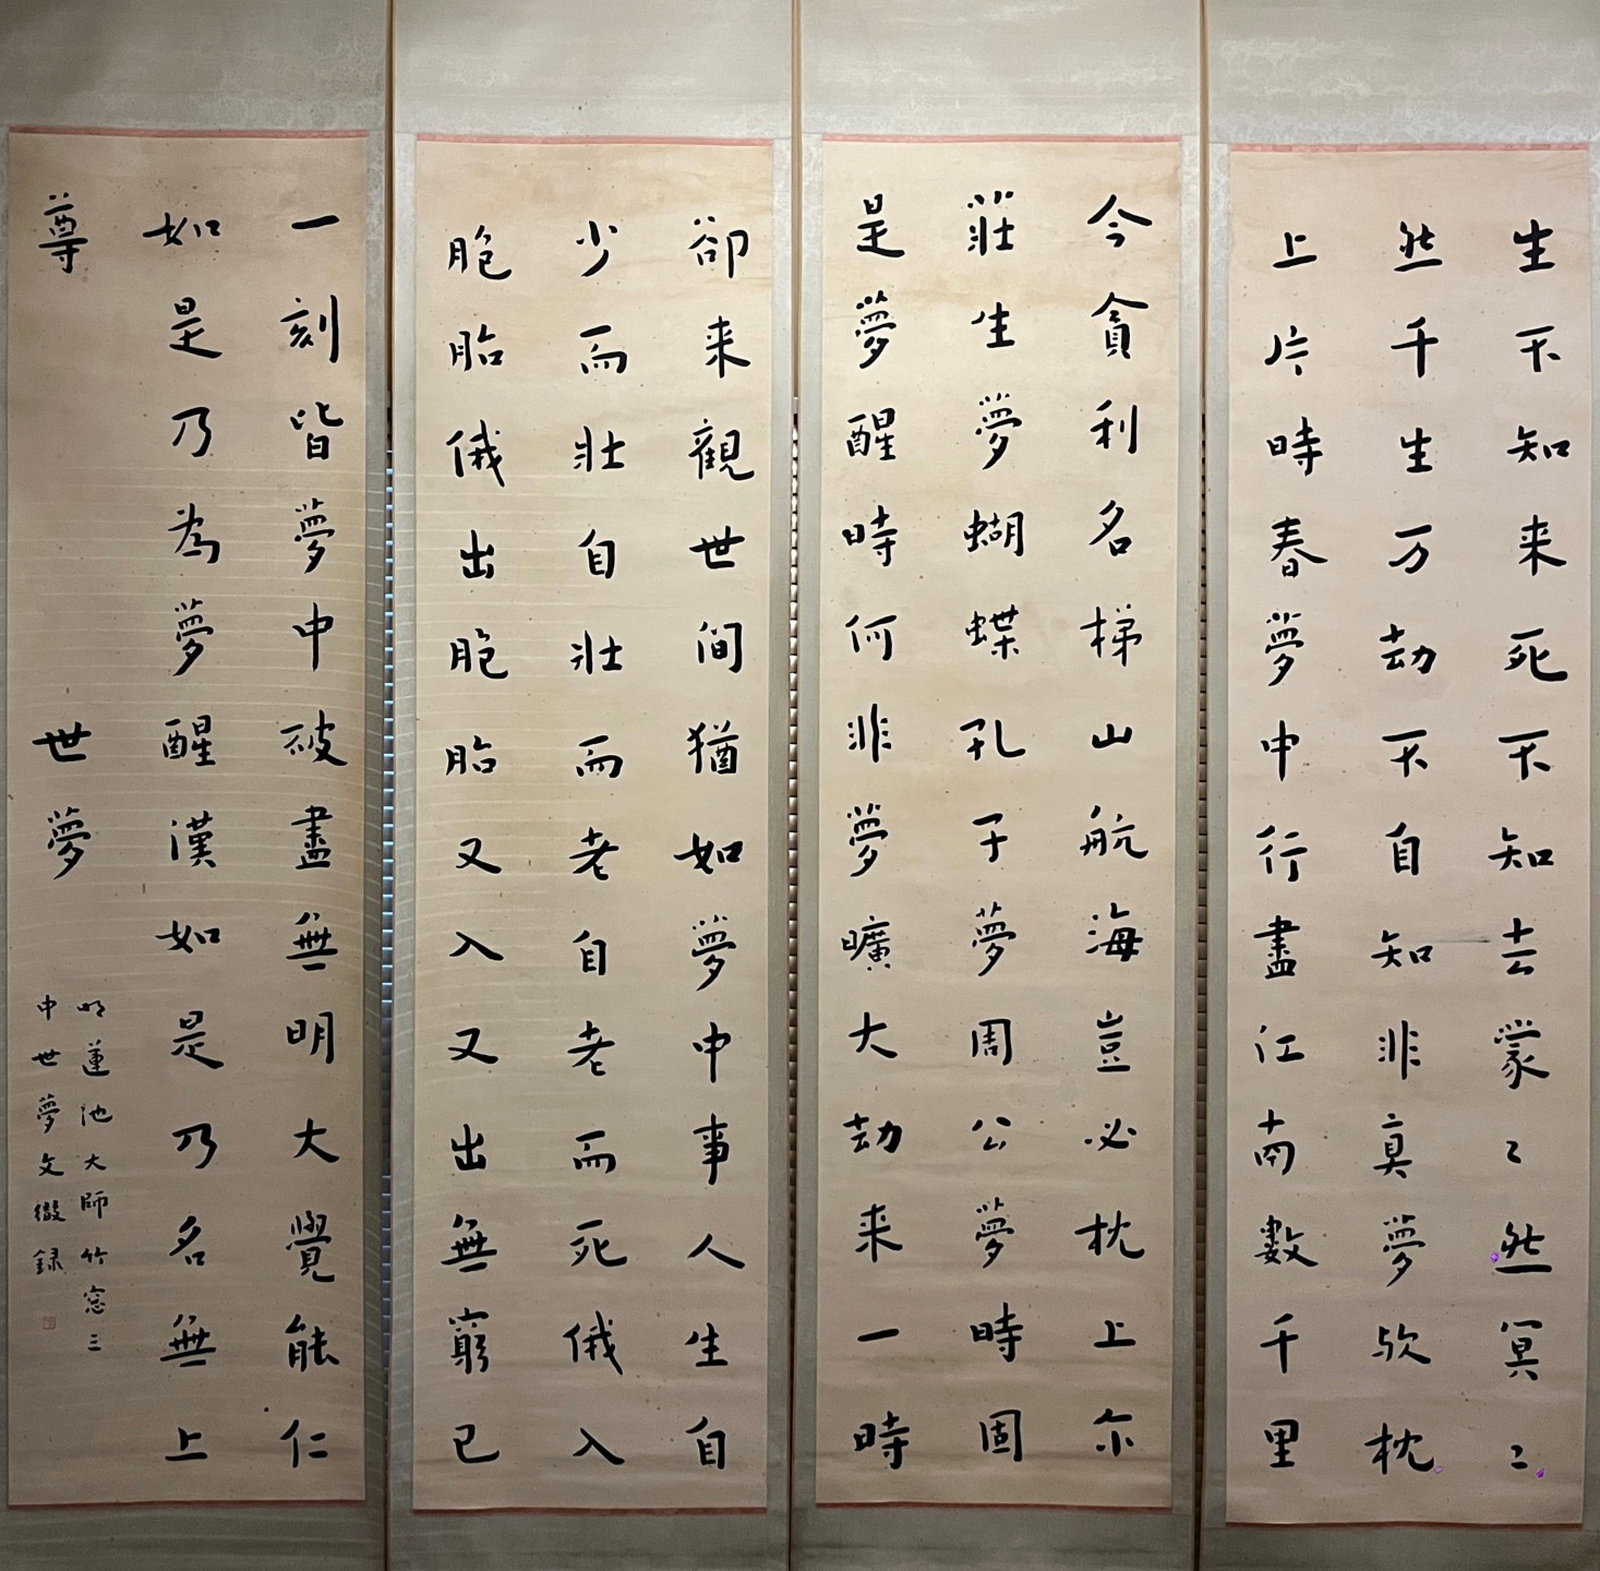 生不知来死不知去蒙〻然冥〻
然千生万劫不自知非真夢欤枕
上片時春夢中行盡江南數千里
今貪利名梯山航海豈必枕上尔
莊生夢蝴蝶孔子夢周公夢時固
是夢醒時何非夢曠大劫来一時
卻来觀世間猶如夢中事人生自
少而壯自壯而老自老而死俄入
胞胎俄出胞胎又入又出無窮已
一刻皆夢中破盡無明大覺能仁
如是乃為夢醒漢如是乃名無上
尊 世夢
明蓮池大師竹窓三
中世夢文 録